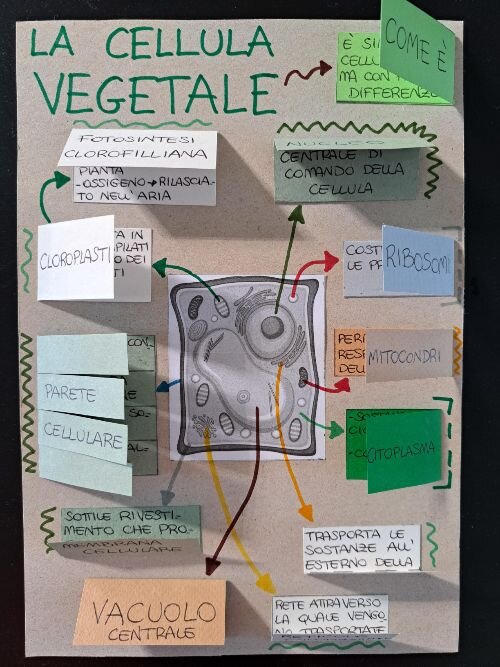 LA CELLULA
VEGETALE
COME È
È SI
CELLU
MA CON
DIFFERENZ
FOTOSINTESI
CLOROFILLIANA
PIANTA
-OSSIGENO→RILASCIA-
TO NELL'ARIA
NUCLEO
CENTRALE DI
COMANDO DELLA
CELLULA
CLOROPLASTI
TA IN
PILATI
O DEI
TI
COST
LE PR
RIBOSOMI
PARETE
CELLULARE
CON-
SO-
AL-
PER
RES
DELL
MITOCONDRI
CITOPLASMA
SOTTILE RIVESTI-
MENTO CHE PRO-
MEMBRANA
CELLULARE
TRASPORTA LE
SOSTANZE ALL'
ESTERNO DELLA
VACUOLO
CENTRALE
RETE ATTRAVERSO
LA QUALE VENGO-
NO TRASPORTATE